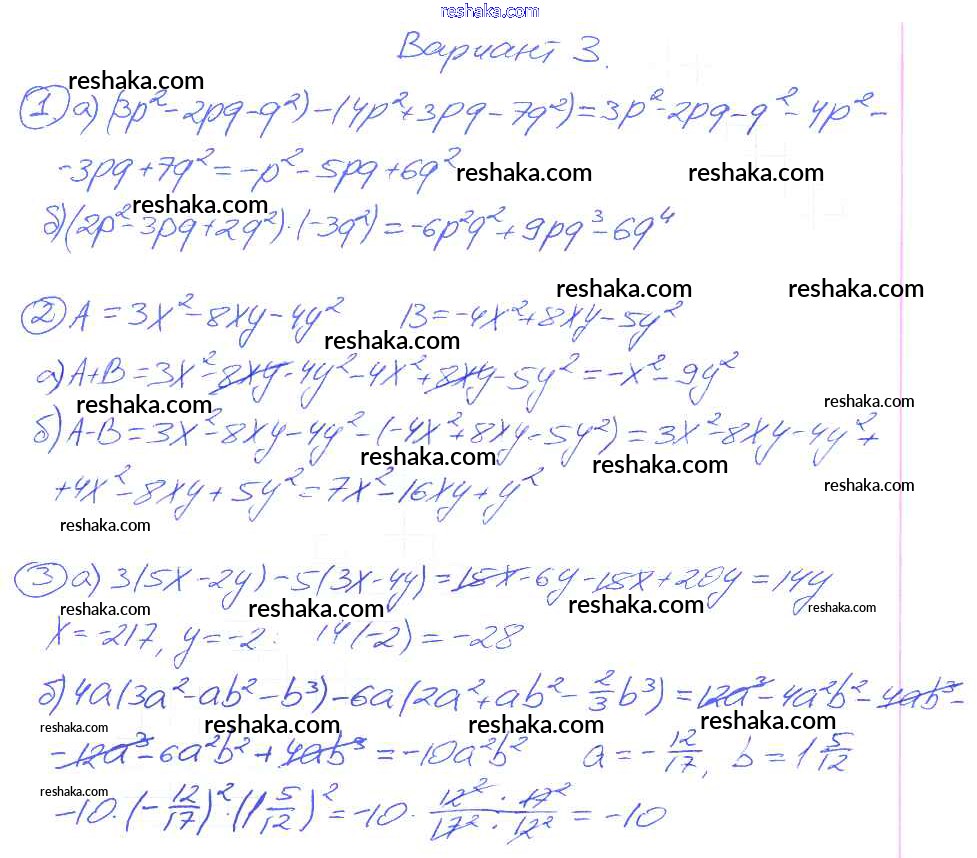 reshaka.com
Вариант 3.
reshaka.com
① а) (3p² - 2pq - q²) - (4p² + 3pq - 7q²) = 3p² - 2pq - q² - 4p² -
- 3pq + 7q² = -p² - 5pq + 6q²
reshaka.com reshaka.com
reshaka.com
б) (2p² - 3pq + 2q²)·(-3q²) = -6p²q² + 9pq³ - 6q⁴
reshaka.com reshaka.com
② A = 3x² - 8xy - 4y² B = -4x² + 8xy - 5y²
reshaka.com
а) A+B = 3x² - 8xy - 4y² - 4x² + 8xy - 5y² = -x² - 9y²
reshaka.com reshaka.com
б) A-B = 3x² - 8xy - 4y² - (-4x² + 8xy - 5y²) = 3x² - 8xy - 4y² +
reshaka.com reshaka.com
+ 4x² - 8xy + 5y² = 7x² - 16xy + y²
reshaka.com
reshaka.com
③ а) 3(5x - 2y) - 5(3x - 4y) = 15x - 6y - 15x + 20y = 14y
reshaka.com reshaka.com reshaka.com reshaka.com
x = -217, y = -2: 14(-2) = -28
б) 4a(3a² - ab² - b³) - 6a(2a² + ab² - 2/3 b³) = 12a³ - 4a²b² - 4ab³ -
reshaka.com reshaka.com reshaka.com reshaka.com
- 12a³ - 6a²b² + 4ab³ = -10a²b² a = -12/17, b = 1 5/12
reshaka.com
-10·(-12/17)²·(1 5/12)² = -10· 12²·17²/17²·12² = -10